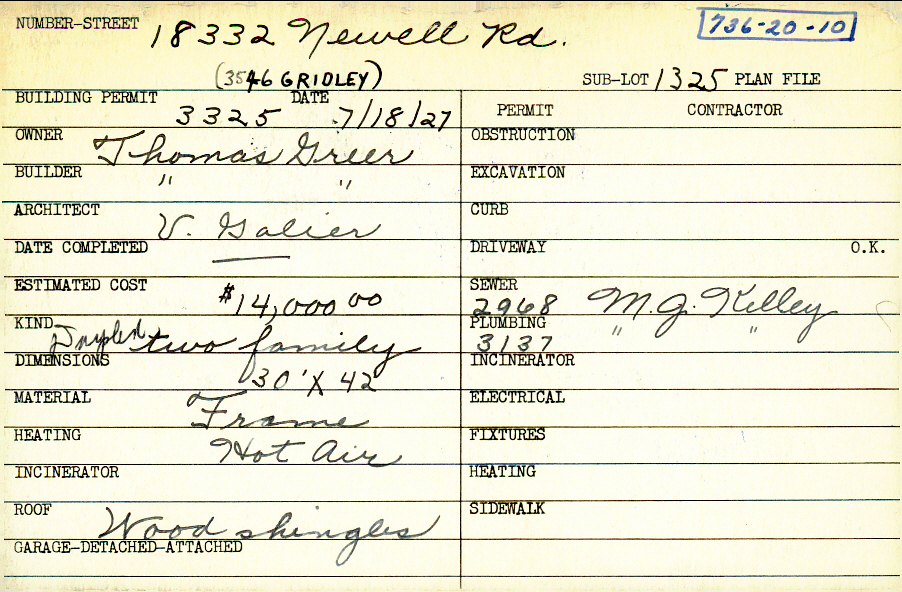 NUMBER-STREET 18332 Newell Rd. 736-20-10
(3546 GRIDLEY) SUB-LOT 1325 PLAN FILE
BUILDING PERMIT 3325 DATE 7/18/27 PERMIT CONTRACTOR
OWNER Thomas Greer OBSTRUCTION
BUILDER " " EXCAVATION
ARCHITECT V. Galier CURB
DATE COMPLETED — DRIVEWAY O.K.
ESTIMATED COST $14,000 00 SEWER 2968 M.J. Kelley
KIND Duplex two family PLUMBING 3137 " "
DIMENSIONS 30' X 42 INCINERATOR
MATERIAL Frame ELECTRICAL
HEATING Hot Air FIXTURES
INCINERATOR HEATING
ROOF Wood shingles SIDEWALK
GARAGE-DETACHED-ATTACHED